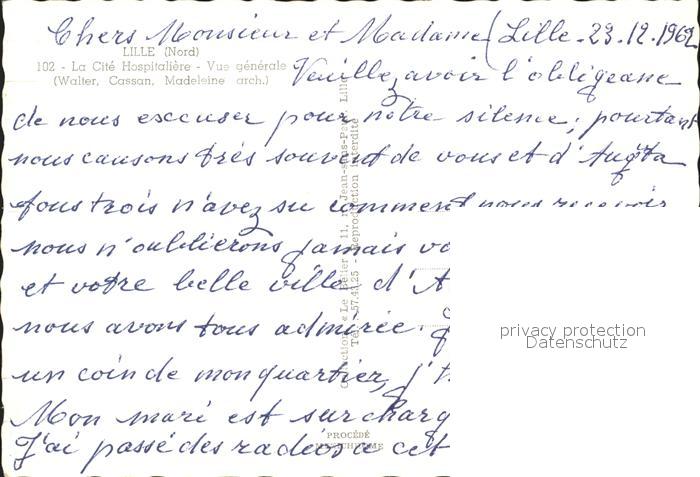 Chers Monsieur et Madame (Lille - 23.12.1962
LILLE (Nord)
102 - La Cité Hospitalière - Vue générale
(Walter, Cassan, Madeleine arch.)
Veuillez avoir l'obligeance
de nous excuser pour nôtre silence; pourtant
nous causons très souvent de vous et d'
tous trois n'avez su comment nous recevoir
nous n'oublierons jamais vo
et votre belle ville d'A
nous avons tous admirée.
un coin de mon quartier, j't
Mon mari est surcharg
J'ai passé des radios à cet
Collection « Le Bélier » 11, rue Jean-sans-Peur, Lille
Tél. 57.42.25 - Reproduction interdite
PROCÉDÉ
privacy protection
Datenschutz